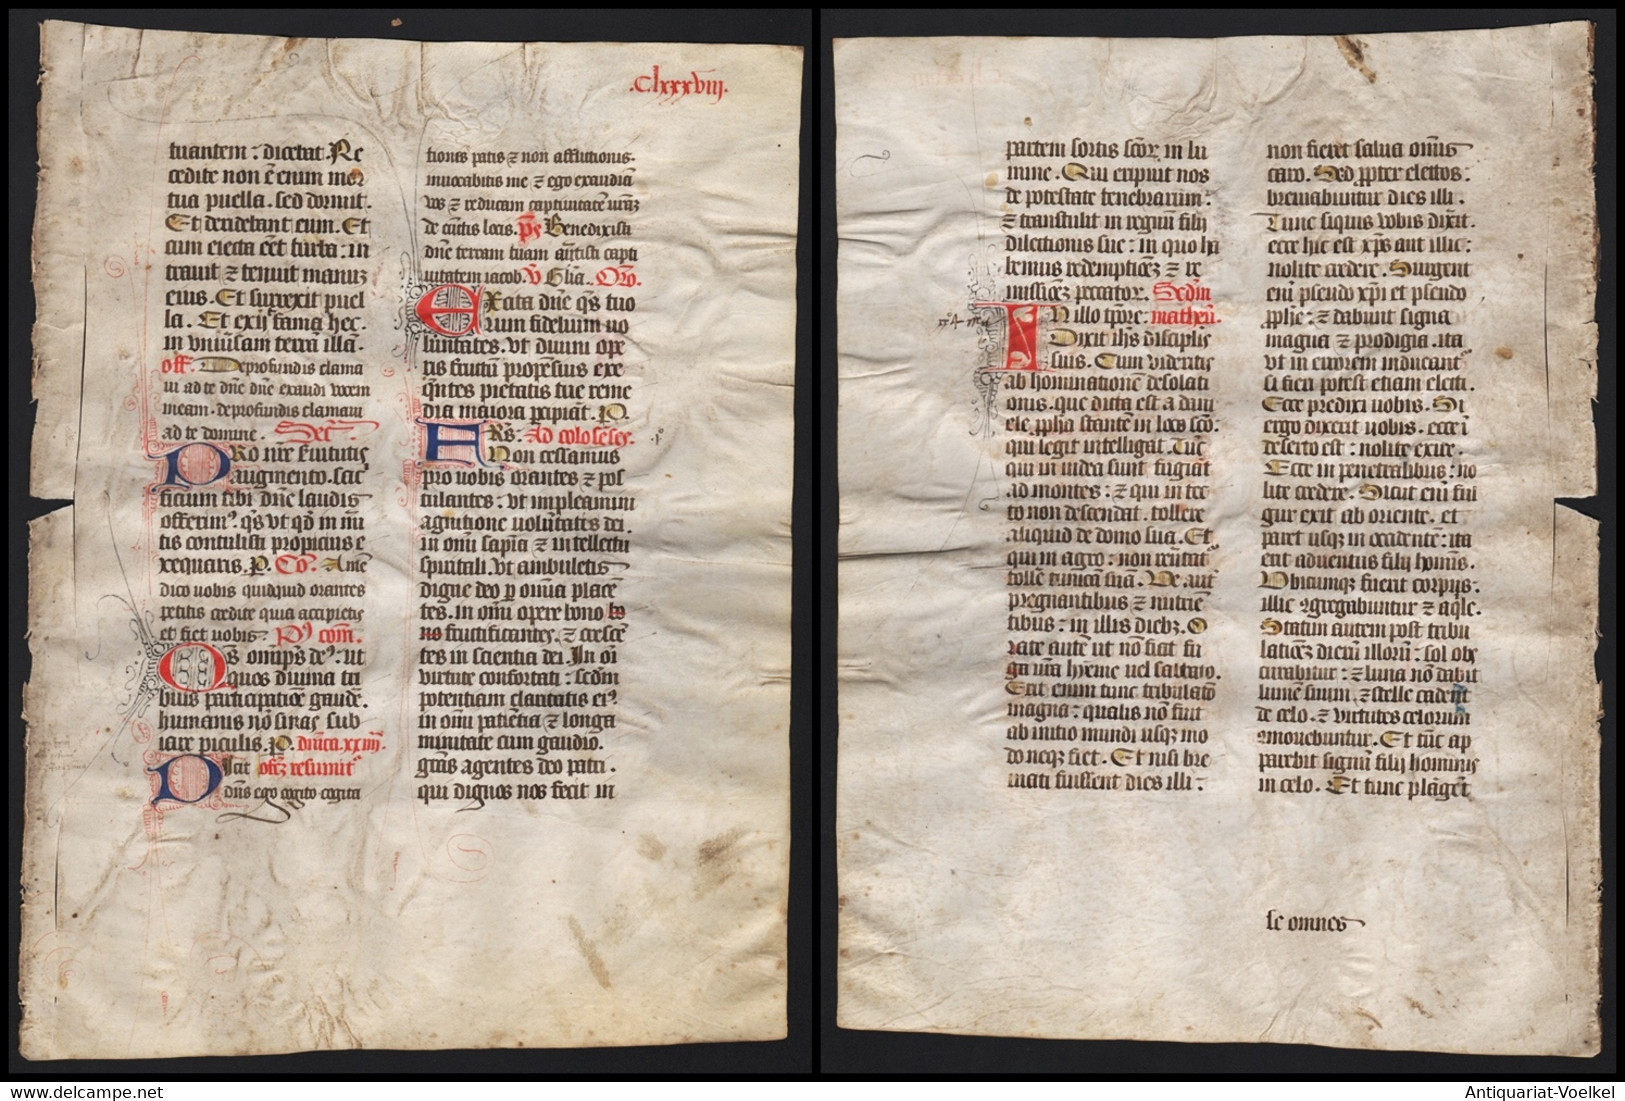 .Clxxxviij.
tuantem: dicebat. Re
cedite non ē enim mor
tua puella. sed dormit.
Et deridebant eum. Et
cum eiecta eēt turba: in
trauit ⁊ tenuit manuz
eius. Et surrexit puel
la. Et exijt fama hec.
in vniūsam terrā illā.
off. De profundis clama
ui ad te dne dne exaudi vocem
meam. de profundis clamaui
ad te domine. Secr̄
PRo nr̄e ſuitutis
augmento. sac
ficium tibi dne laudis
offerimꝰ. qs vt qd in mi
tis contulisti propicius e
xequaris. p. Co. Amē
dico vobis quidquid orantes
petitis credite quia accipietis
et fiet vobis. Pꝰ com.
QS omps dsꝰ: ut
quos diuina tri
buis participatiōe gaudē.
humanis nō sinas sub
iace piculis. p. dnica. xxiiij
Dicit offz resumitꝰ
dns ego cogito cogita
tiones pacis ⁊ non afflictionis.
inuocabitis me ⁊ ego exaudiā
vos ⁊ reducam captiuitatē urāz
de cūctis locis. ps Benedixisti
dne terram tuam aūtisti capti
uitatem iacob. V Glia. Oro.
EXcita dne qs tuo
rum fidelium uo
luntates. vt diuini ope
ris fructū propēsius exe
qntes pietatis tue reme
dia maiora pcipiāt. p.
FRS. Ad colosēses.
Non cessamus
pro vobis orantes ⁊ pos
tulantes: vt impleamini
agnitione uolūtates dei.
in omi sapia ⁊ intellectu
spiritali. vt ambuletis
digne deo p omia placē
tes. in omi opere bono bo
no fructificantes. ⁊ crescē
tes in scientia dei. In oī
virtute confortati: scdm
potentiam claritatis eiꝰ.
in omi patiētia ⁊ longa
nimitate cum gaudio.
gras agentes deo patri.
qui dignos nos fecit in
partem sortis scor̄. in lu
mine. Qui eripuit nos
de potestate tenebrarum.
⁊ transtulit in regnū filij
dilectionis sue: in quo ha
bemus redemptioez ⁊ re
missioez peccator. Scdm
IN illo tpore: matheū.
Dixit ihs discipulis
suis. Cum videritis
abhominationē desolati
onis. que dicta est a dani
ele ppha stantē in loco scō:
qui legit intelligat. Tūc
qui in iudea sunt fugiāt
ad montes: ⁊ qui in tec
to non descendat. tollere
aliquid de domo sua. Et
qui in agro: non reūtatꝰ
tollē tunicam suā. Ve autꝰ
pregnantibus ⁊ nutriē
tibus: in illis diebz. O
rate autē ut nō fiat fu
ga ura hyeme uel sabbato.
Erit enim tunc tribulatō
magna: qualis nō fuit
ab initio mundi usqz mo
do neqz fiet. Et nisi bre
uiati fuissent dies illi:
non fieret salua omis
caro. Sed ppter electos:
breuiabuntur dies illi.
Tunc siquis vobis dixit.
ecce hic est xps aut illic:
nolite credere. Surgent
eni pseudo xpi et pseudo
pphe: ⁊ dabunt signa
magna ⁊ prodigia. ita
vt in errorem inducantꝰ
si fieri potest etiam electi.
Ecce predixi uobis. Si
ergo dixerit uobis. ecce ī
deserto est: nolite exire.
Ecce in penetralibus: no
lite credere. Sicut eni ful
gur exit ab oriente. et
paret usqz in occidentē: ita
erit aduentus filij homis.
Vbicumqz fuerit corpꝰ:
illic ꝯgregabuntur ⁊ aqle.
Statim autem post tribu
latioez dierū illorum: sol obs
curabitur: ⁊ luna nō dabit
lumē suum. ⁊ stelle cadent
de celo. ⁊ virtutes celorum
ꝯmouebuntur. Et tūc ap
parebit signū filij hominis
in celo. Et tunc plāgent
se omnes
© www.delcampe.net
Antiquariat-Voelkel